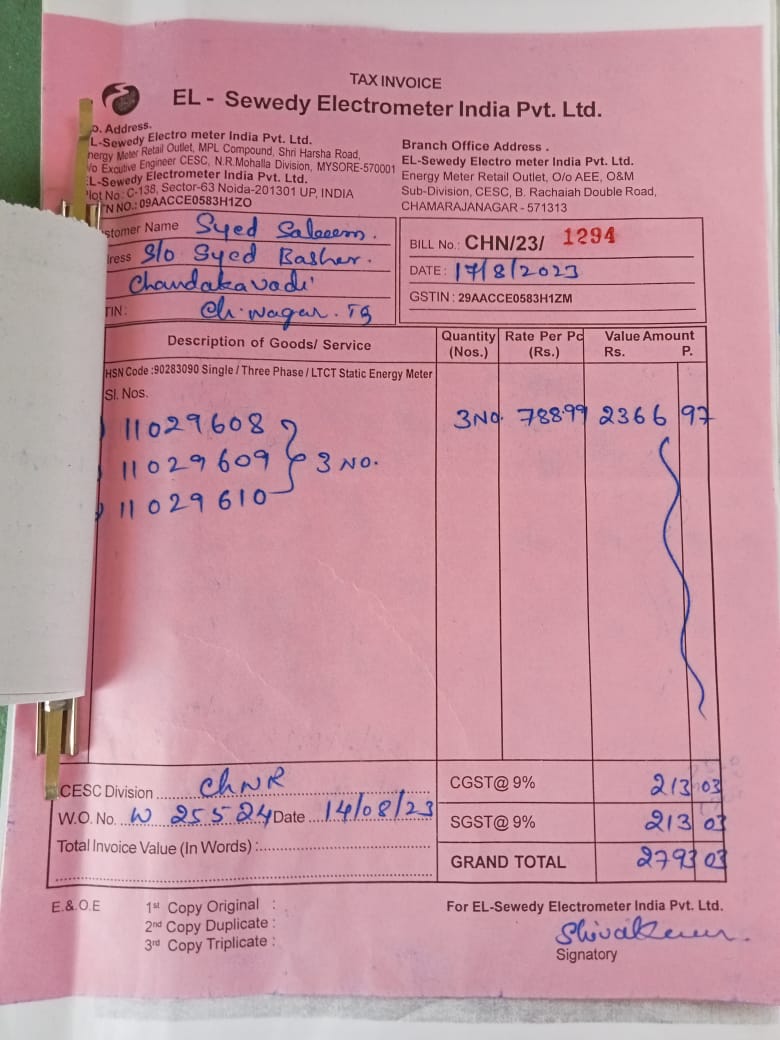 TAX INVOICE
EL - Sewedy Electrometer India Pvt. Ltd.
o. Address.
L-Sewedy Electro meter India Pvt. Ltd.
nergy Meter Retail Outlet, MPL Compound, Shri Harsha Road,
/o Excutive Engineer CESC, N.R.Mohalla Division, MYSORE-570001
L-Sewedy Electrometer India Pvt. Ltd.
lot No: C-138, Sector-63 Noida-201301 UP, INDIA
N NO.: 09AACCE0583H1ZO
Branch Office Address .
EL-Sewedy Electro meter India Pvt. Ltd.
Energy Meter Retail Outlet, O/o AEE, O&M
Sub-Division, CESC, B. Rachaiah Double Road,
CHAMARAJANAGAR - 571313
stomer Name Syed Saleem.
ress S/o Syed Basher.
Chandakavadi
TIN: Ch.nagar. Tq
BILL No.: CHN/23/ 1294
DATE: 17/8/2023
GSTIN: 29AACCE0583H1ZM
Description of Goods/ Service Quantity (Nos.) Rate Per Pc (Rs.) Value Amount Rs. P.
HSN Code :90283090 Single / Three Phase / LTCT Static Energy Meter
Sl. Nos.
11029608 3 No. 788.99 2366 97
11029609 3 NO.
11029610
CESC Division ChNR CGST@ 9% 213 03
W.O. No. W 25524 Date 14/08/23 SGST@ 9% 213 03
Total Invoice Value (In Words) : GRAND TOTAL 2793 03
E.&.O.E 1st Copy Original :
2nd Copy Duplicate :
3rd Copy Triplicate :
For EL-Sewedy Electrometer India Pvt. Ltd.
Signatory